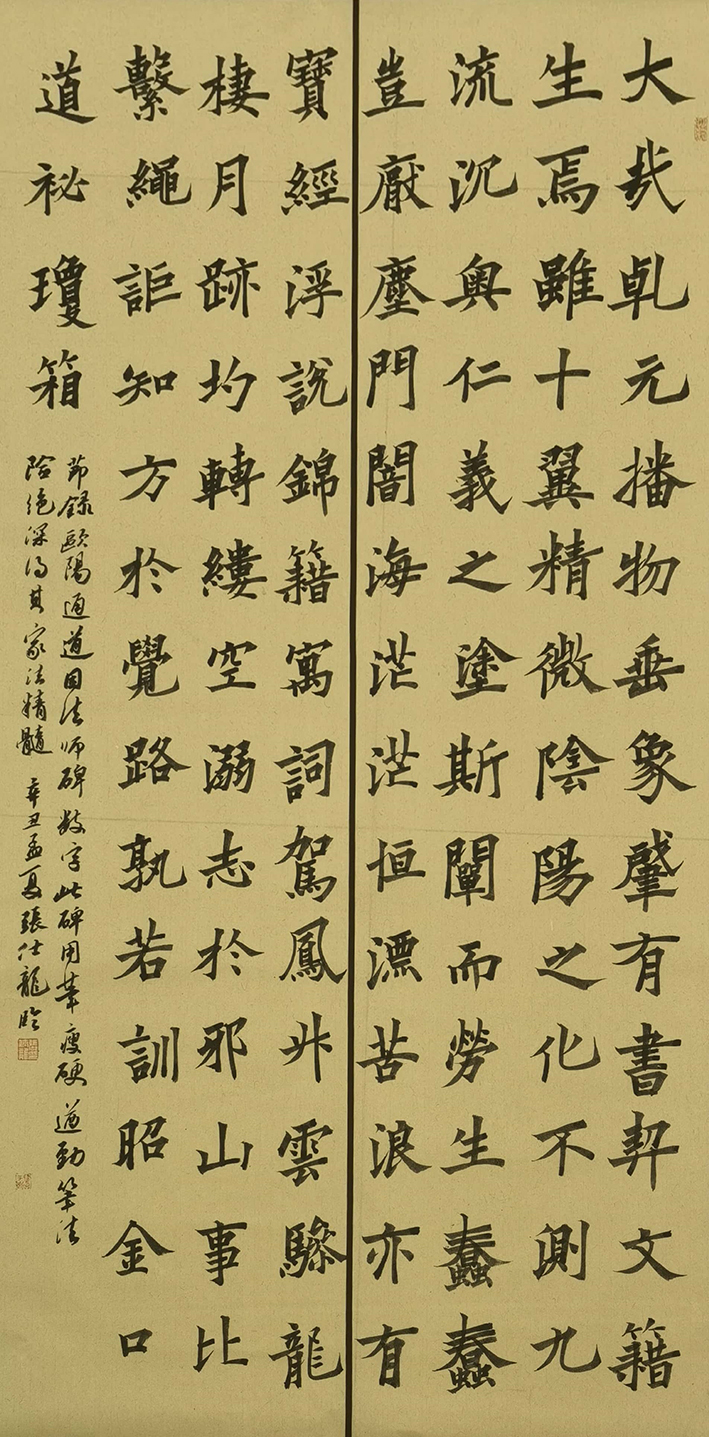 大哉乹元播物垂象肇有書契文籍
生焉雖十翼精微陰陽之化不測九
流沉奥仁義之塗斯闡而勞生蠢蠢
豈厭塵門闇海茫茫恒漂苦浪亦有
寶經浮說錦籍寓詞駕鳳升雲驂龍
棲月跡圴轉縷空溺志於邪山事比
繫繩詎知方於覺路孰若訓昭金口
道祕瓊箱
節録歐陽通道因法师碑数字此碑用筆瘦硬遒勁筆法
险绝深得其家法精髓 辛丑孟夏張仕龍临